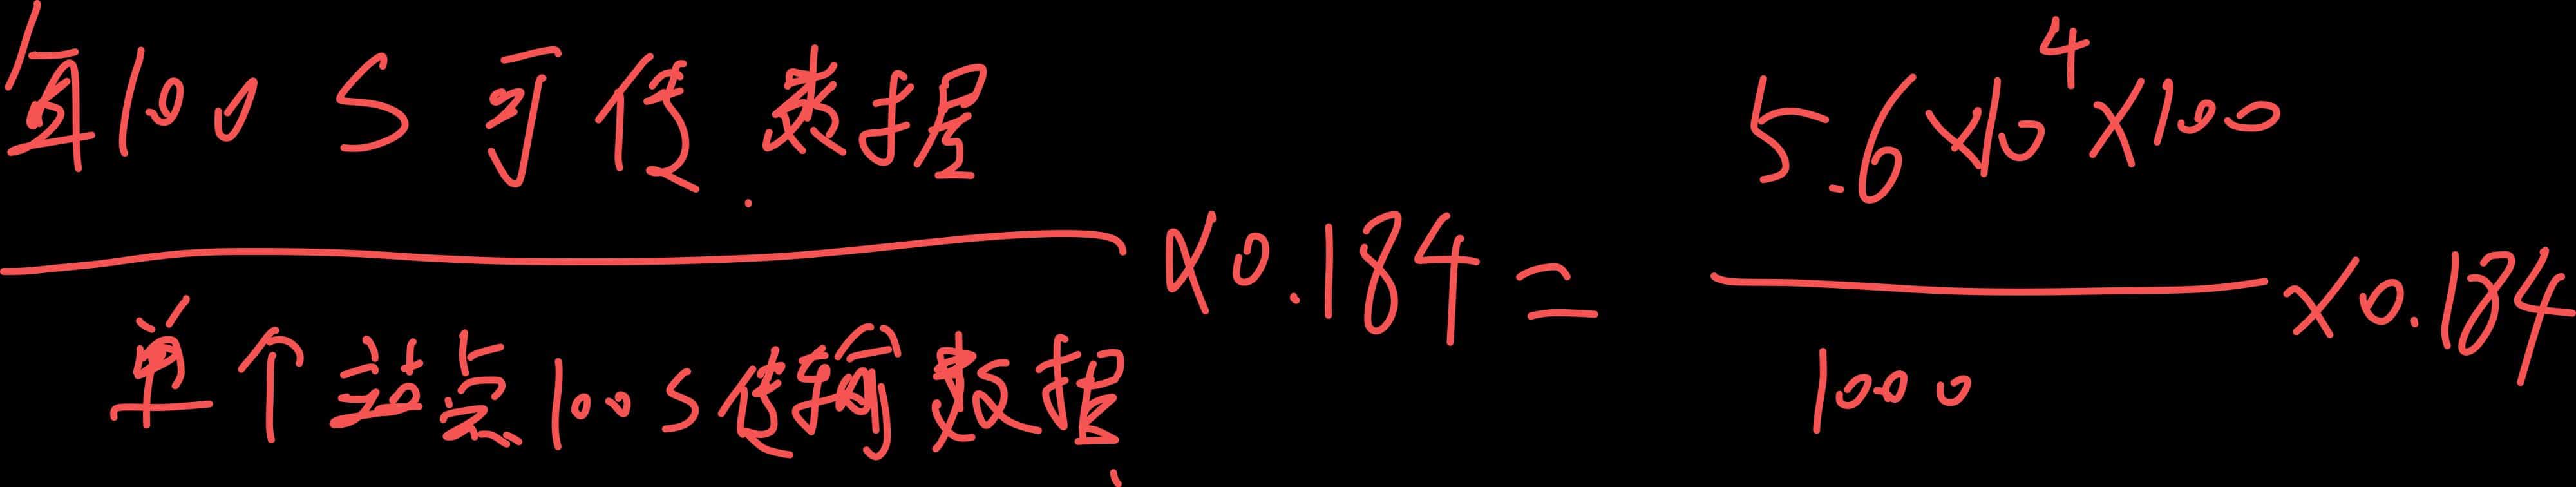 每100 S 可传数据
单个站点100S传输数据
×0.184 =
5.6×10⁴×100
1000
×0.184